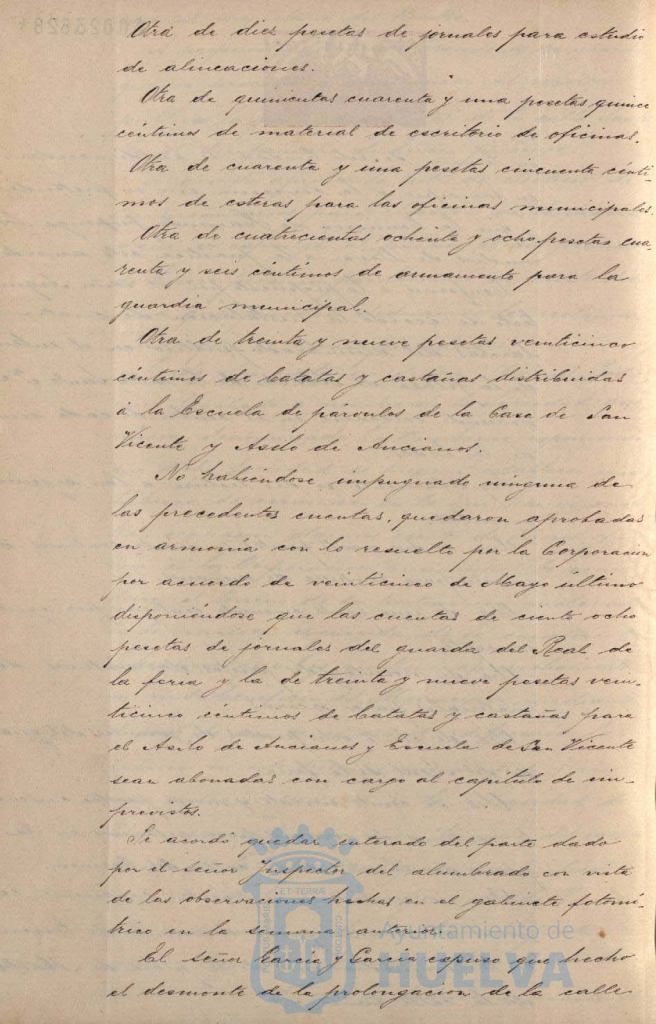 Otra de diez pesetas de jornales para estudio
de alineaciones.
Otra de quinientas cuarenta y una pesetas quince
céntimos de material de escritorio de oficinas.
Otra de cuarenta y una pesetas cincuenta cénti-
mos de esteras para las oficinas municipales.
Otra de cuatrocientas ochenta y ocho pesetas cua-
renta y seis céntimos de armamento para la
guardia municipal.
Otra de treinta y nueve pesetas veinticinco
céntimos de batatas y castañas distribuidas
á la Escuela de párvulos de la Casa de San
Vicente y Asilo de Ancianos.
No habiéndose impugnado ninguna de
las precedentes cuentas, quedaron aprobadas
en armonía con lo resuelto por la Corporación
por acuerdo de veinticinco de Mayo último
disponiéndose que las cuentas de ciento ocho
pesetas de jornales del guarda del Real de
la feria y la de treinta y nueve pesetas vein-
ticinco céntimos de batatas y castañas para
el Asilo de Ancianos y Escuela de San Vicente
sean abonadas con cargo al capítulo de im-
previstos.
Se acordó quedar enterado del parte dado
por el señor Inspector del alumbrado con vista
de las observaciones hechas en el gabinete fotomé-
trico en la semana anterior.
El señor García y García expuso que hecho
el desmonte de la prolongación de la calle
Ayuntamiento de
HUELVA